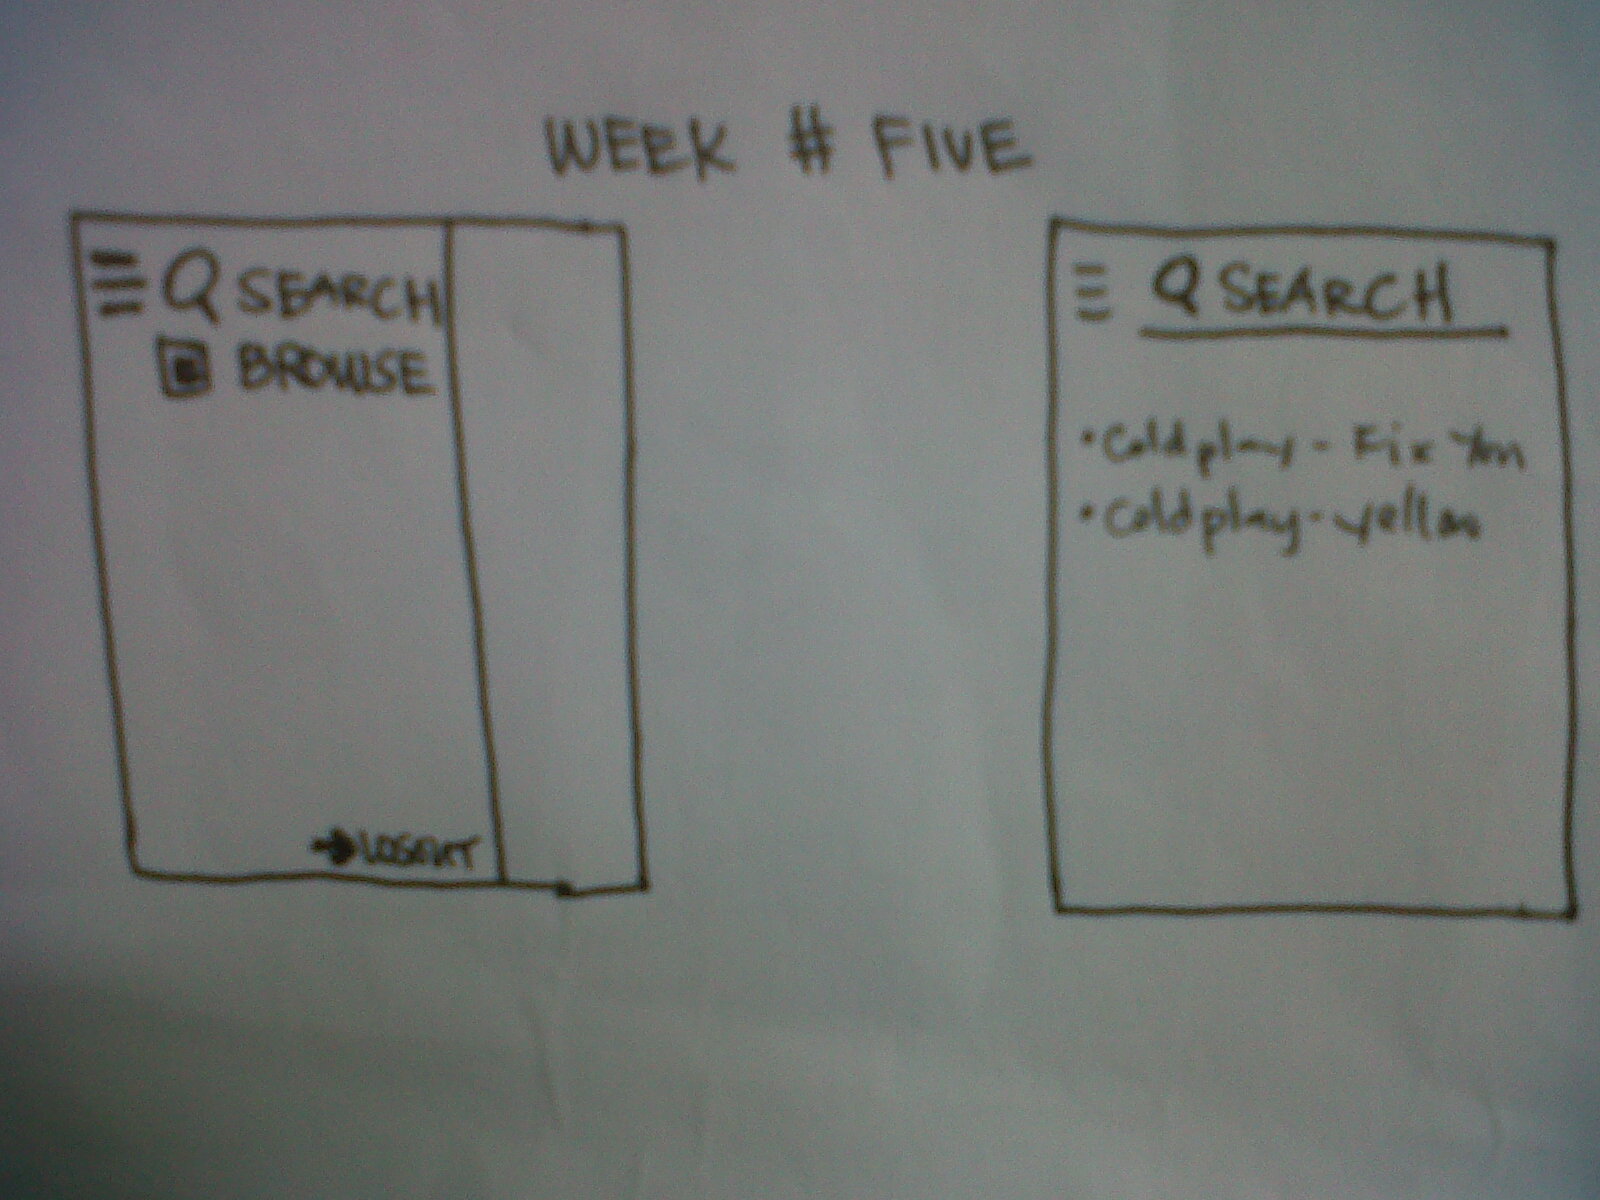 WEEK # FIVE
SEARCH
BROWSE
LOGOUT
SEARCH
• Coldplay - Fix You
• Coldplay - yellow